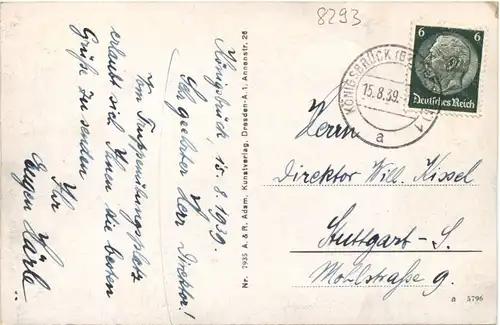 8293
Königsbrück, 15.8.1939.
Sehr geehrter Herr Direktor!
Vom Truppenübungsplatz
erlaubt sich Ihnen die besten
Grüße zu senden
Ihr
Eugen Härle.
Nr. 7935 A. & R. Adam, Kunstverlag, Dresden-A. 1, Annenstr. 26
KÖNIGSBRÜCK
15.8.39
a
6 6
Deutsches Reich
Herrn
Direktor Will. Kissel
Stuttgart-S.
Mohlstraße 9.
a 5796